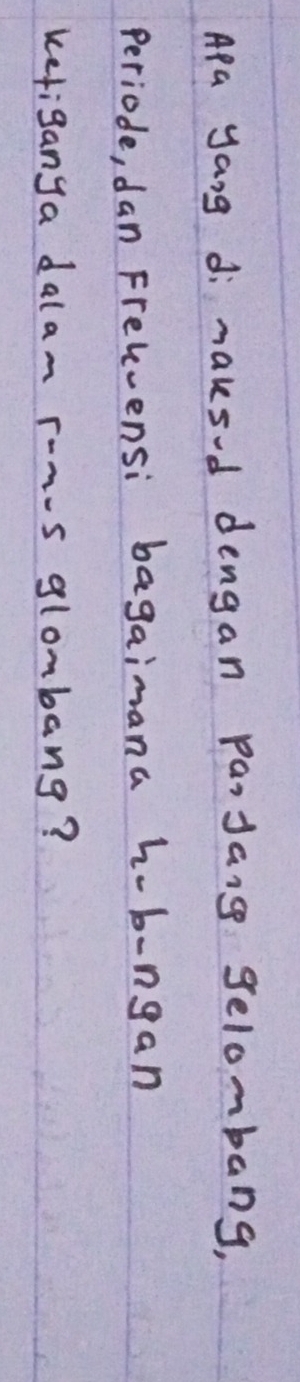 Apa yang di maksud dengan panjang gelombang,
Periode, dan Frekuensi bagaimana hubungan
ketiganya dalam rumus glombang?